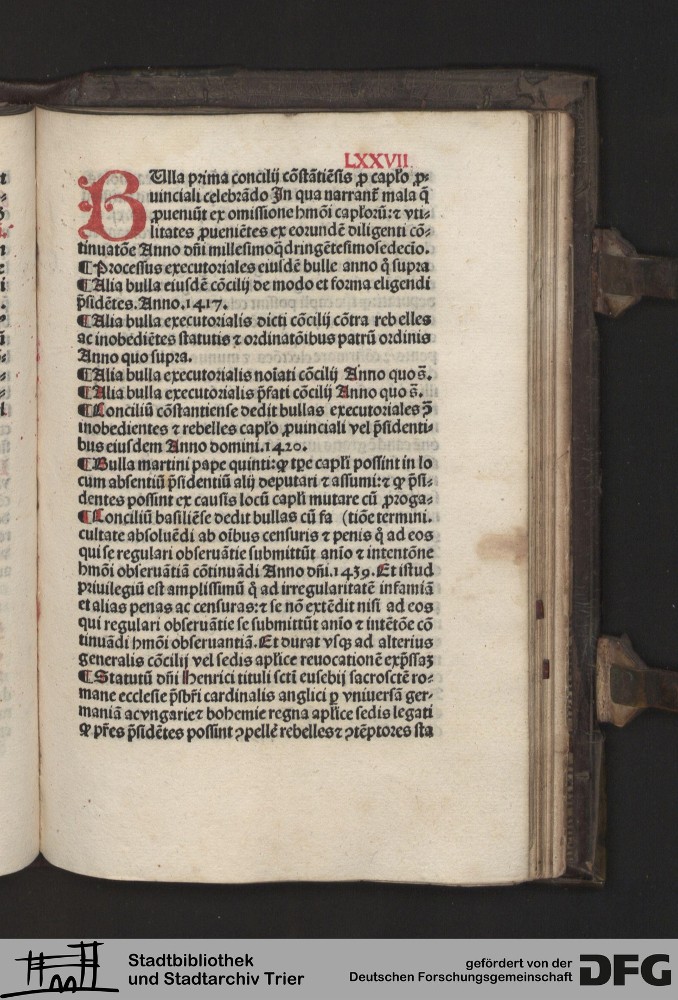 LXXVII.
BUlla prima concilij cōstātiēsis ꝓ capło ꝓ⸗
uinciali celebrādo In qua narrant᷑ mala q̄
ꝓueniūt ex omissione hmōi capłorū: ⁊ vti⸗
litates ꝓueniētes ex eorundē diligenti cō⸗
tinuatōe Anno dn̄i millesimoq̄dringētesimosedecīo.
¶Processus executoriales eiusdē bulle anno q̊ supra
¶Alia bulla eiusdē cōcilij de modo et forma eligendi
p̄sidētes. Anno .1417.
¶Alia bulla executorialis dicti cōcilij cōtra rebelles
ac inobediētes statutis ⁊ ordinatōibus patrū ordinis
Anno quo supra.
¶Alia bulla executorialis noīati cōcilij Anno quo s̄.
¶Alia bulla executorialis p̄fati cōcilij Anno quo s̄.
¶Conciliū cōstantiense dedit bullas executoriales ꝯ̄
inobedientes ⁊ rebelles capło ꝓuinciali vel p̄sidenti⸗
bus eiusdem Anno domini .1420.
¶Bulla martini pape quinti: ꝙ tp̄e capłi possint in lo
cum absentiū p̄sidentiū alij deputari ⁊ assumi: ⁊ ꝙ p̄si⸗
dentes possint ex causis locū capłi mutare cū ꝓroga⸗
¶Conciliū basiliēse dedit bullas cū fa (tiōe termini.
cultate absoluēdi ab oībus censuris ⁊ penis q̊ ad eos
qui se regulari obseruātie submittūt anīo ⁊ intentōne
hmōi obseruātiā cōtinuādi Anno dn̄i .1439. Et istud
priuilegiū est amplissimū q̊ ad irregularitatē infamiā
et alias penas ac censuras: ⁊ se nō extēdit nisi ad eos
qui regulari obseruātie se submittūt anīo ⁊ intētōe cō
tinuādi hmōi obseruantiā. Et durat vsq̢ ad alterius
generalis cōcilij vel sedis apłice reuocationē exp̄ssaꝫ
¶Statutū dn̄i Henrici tituli sctī eusebij sacrosctē ro⸗
mane ecclesie p̄sbr̄i cardinalis anglici ꝑ vniuersā ger⸗
maniā ac vngarie ⁊ bohemie regna apłice sedis legati
ꝙ pr̄es p̄sidētes possint ꝯpellē rebelles ⁊ ꝯtēptores sta
Stadtbibliothek
und Stadtarchiv Trier
gefördert von der
Deutschen Forschungsgemeinschaft
DFG